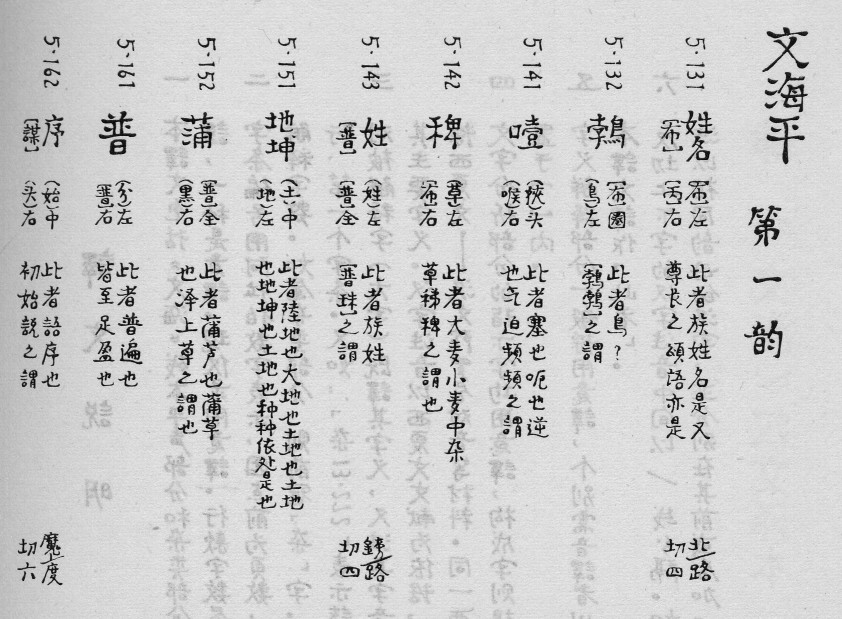 文海平 第一韵
5·131 姓名 [布]左 此者族姓名是又 北路
[布] (丙)右 尊长之頌語亦是 切四
5·132 鵓 [布]圈 此者鳥?
(鳥)左 [鵓鵓]之謂
5·141 噎 (狹)头 此者塞也呃也逆
(喉)右 也气迫頻頻之謂
5·142 稗 (草)左 此者大麦小麦中杂
[布]右 草稊稗之謂也
5·143 姓 (姓)左 此者族姓 路
[普] [普]全 [普珠]之謂 切四
5·151 地、坤 (土)中 此者陸地也大地也土地也土地
(地)左 也地坤也土地也种种依处是也
5·152 蒲 [普]全 此者蒲芦也蒲草
(黑)右 也泽上草之謂也
5·161 普 (分)左 此者普遍也
[普]右 皆至足盈也
5·162 序 (始)中 此者語序也 魔度
[謀] (头)右 初始説之謂 切六